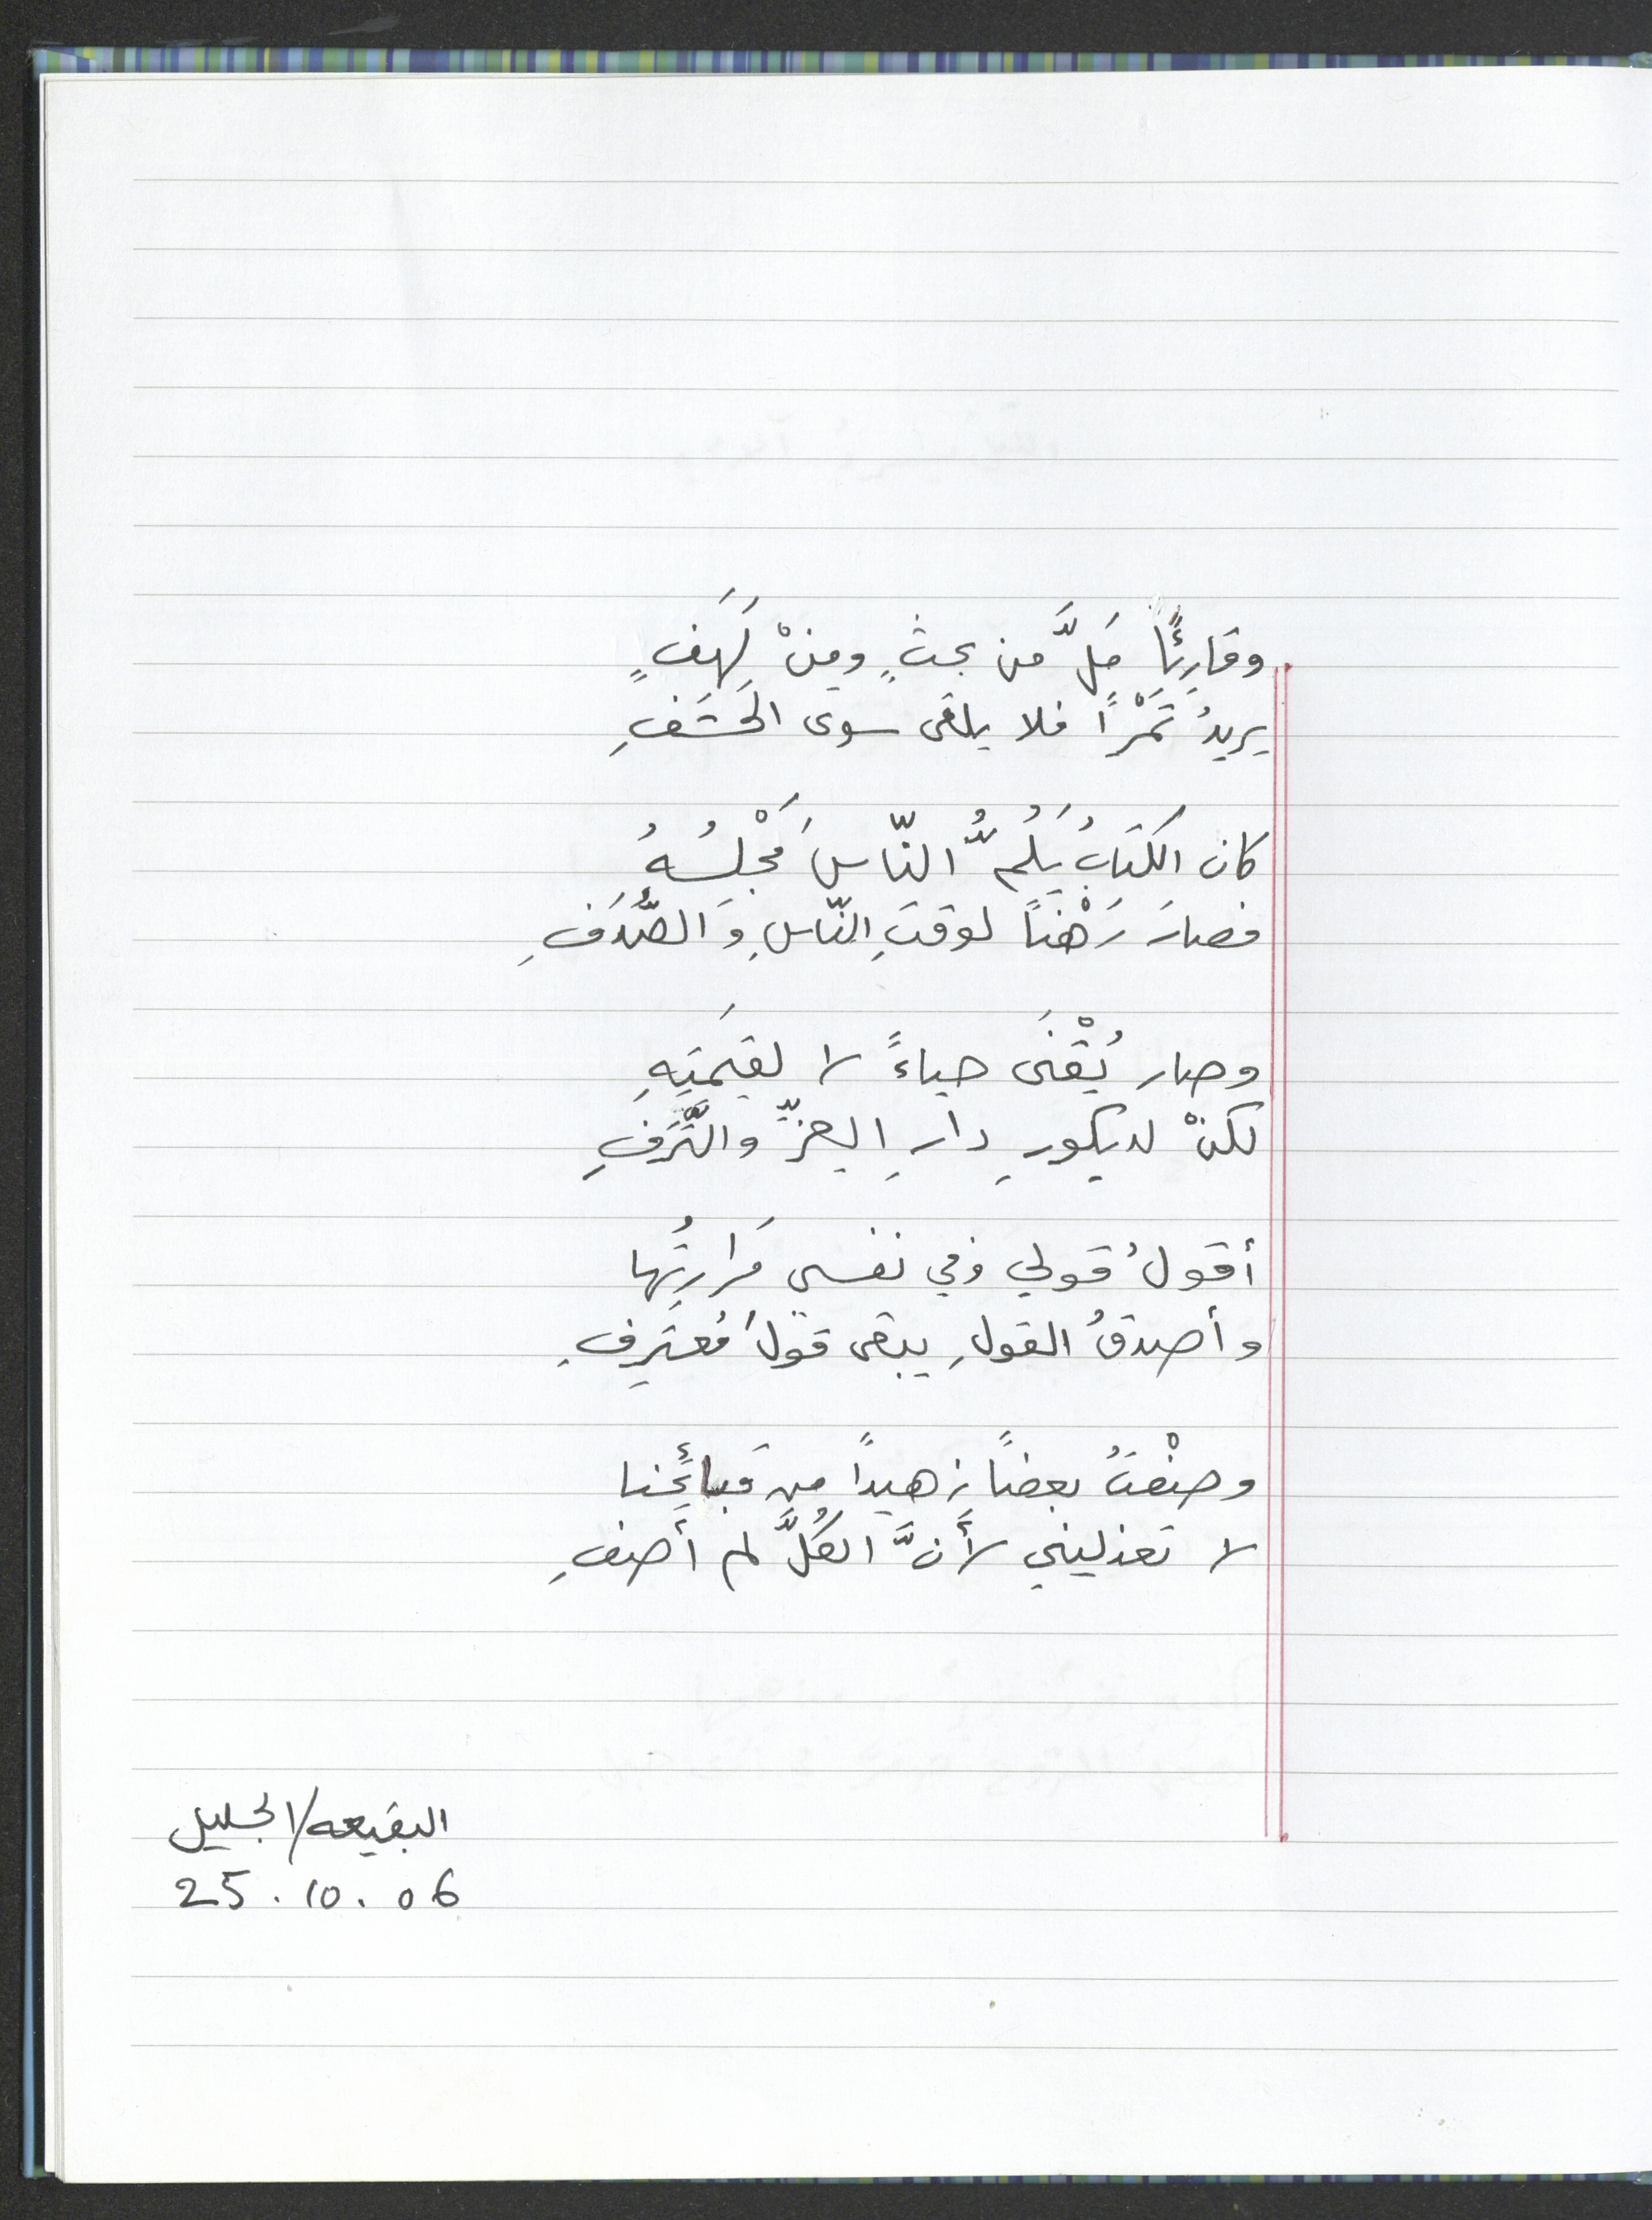 وقارِئًا مَلَّ من بحثٍ ومِنْ لَهَفٍ
يريدُ تَمْرًا فلا يلقى سوى الحَشَفِ
كان الكتابُ يَلُمُّ النّاسَ مَجْلِسُهُ
فصارَ رَهْنًا لوقتِ النّاسِ وَالصُّدَفِ
وصار يُقْنَى حياءً لا لقيمَتِهِ
لكنْ لديكورِ دارِ العِزِّ والتَّرَفِ
أقولُ قولي وفي نفسي مَرارتُها
وأصدقُ القولِ يبقى قولُ مُعتَرِفِ
وصفْتُ بعضًا زهيدًا من قبائِحَنا
لا تعذليني لأَنَّ الكُلَّ لم أصفِ
البقيعه/الجليل
25.10.06